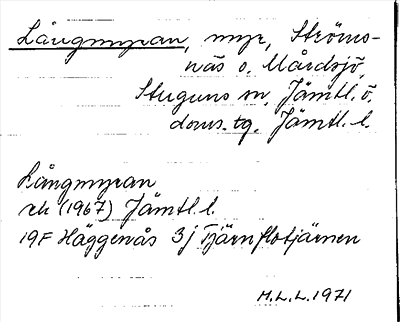 Långmyran, myr, Ströms-
näs o. Mårdsjö,
Stuguns sn, Jämtl. ö.
doms. tg. Jämtl. l.
Långmyran
rek (1967) Jämtl. l.
19F Häggenås 3j Tjärnflotjärnen
M.L.L. 1971